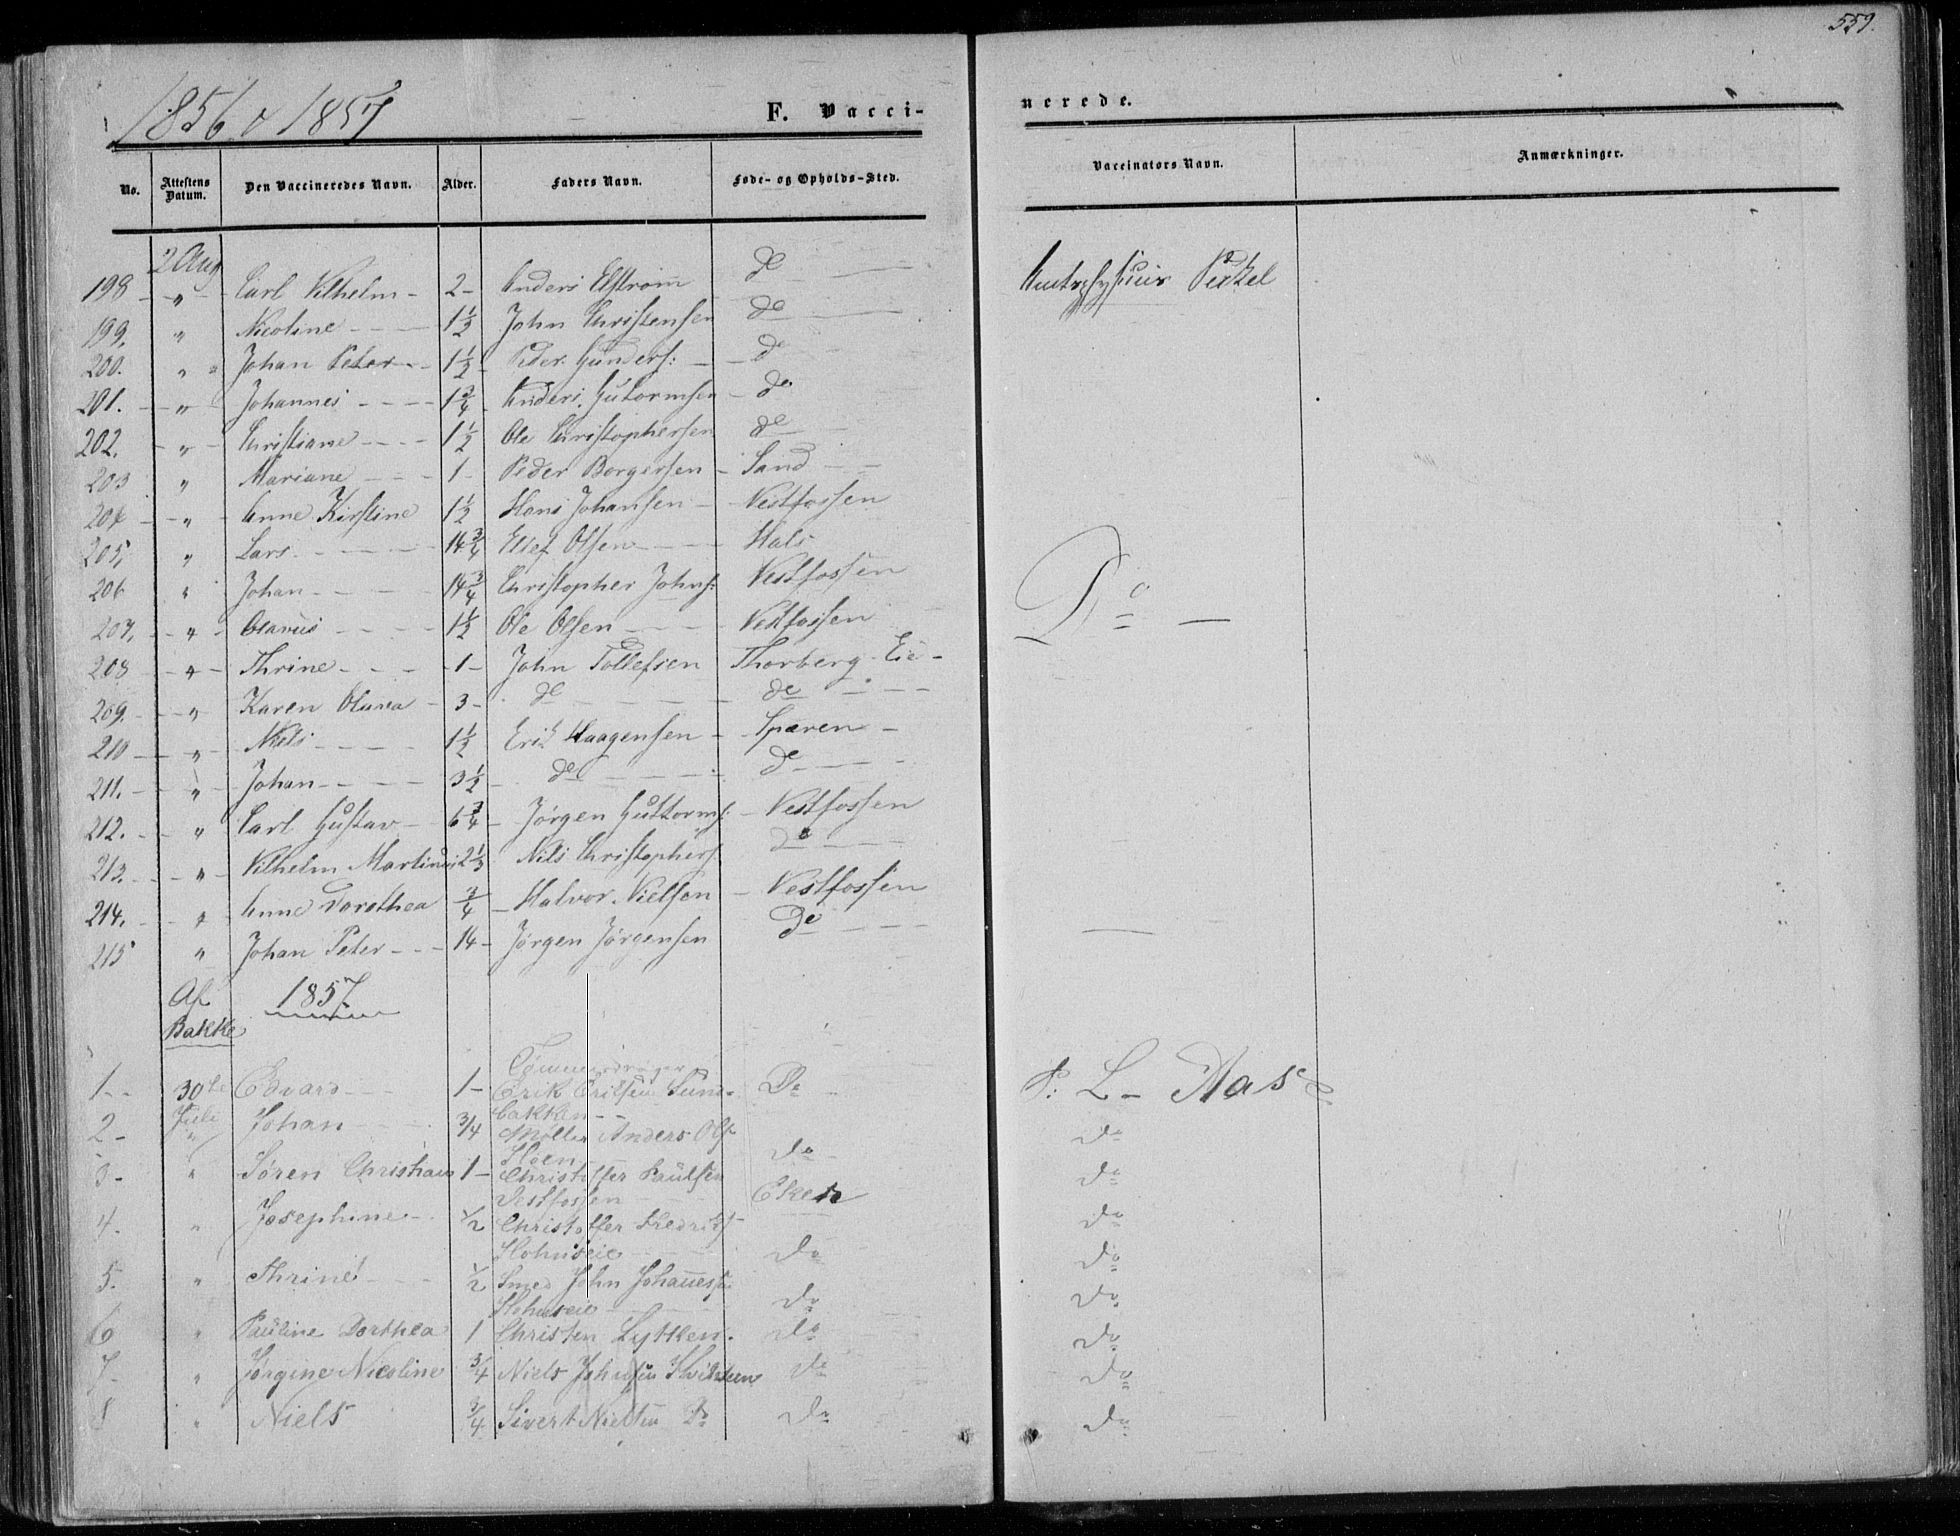 559.
1856 & 1857
F. Vacci-
nerede.
No. Attestens Datum. Den Vaccineredes Navn. Alder. Faders Navn. Føde- og Opholds-Sted. Vaccinators Navn. Anmærkninger.
2 Aug
198 - " - Carl Vilhelm - 2 - Anders Elfstrøm do
199. " Nicoline - - - 1 1/2 John Christensen do
200. " Johan Peter - - 1 1/2 - Peder Gunders: - do
201. - " - Johannes - - - - 1 3/4 - Anders Gutormsen - do
202. - " - Christiane - - - 1 1/2 Ole Christophersen do
203 " Mariane - - - 1 - Peder Borgersen - Sand - -
204 - " - Anne Kirstine 1 1/2 Hans Johansen - Vestfossen
205, " Lars - - - - 14 3/4 Ellef Olsen - - - Hals
206 " Johan - - - - 14 3/4 Christopher Johns: Vestfossen
207, - " - Olavus - - - - 1 1/2 Ole Olsen - - - Vestfossen Do -
208 - " - Thrine - - - - 1 - John Tollefsen Thorberg Eie -
209. - " Karen Olavea - 3 - do - - - - do - - -
210 - " Niels - - - - 1 1/2 Erik Haagensen - Sparen -
211. - " Johan - - - - 3 1/2 - do - - - - do - - -
212. - " Carl Gustav - 6 3/4 - Jørgen Guttorms: - Vestfossen
213. - " - Vilhelm Martinus 2 1/3 Nils Christophers: do - - -
214. - " Anne Dorothea 3/4 - Halvor Nielsen - Vestfossen
215 " Johan Peter - - - 14 - Jørgen Jørgensen do - - -
Af Bakke 1857
Tømmerdrager
1 - - 30te Edvard - - 1 - Erik Eriksen Sund- Do L - Aas
bakken - -
2 - Juli " Johan - - - - 3/4 Møller Anders Ols: do
Hoen - do -
3 - " Søren Christian 1 - Christoffer Paulsen do
Vestfossen - - Eker
4. " Josephine - - 1/2 Christoffer Fredriks: do
do do
5. " Thrine - - - 1/2 Smed John Johannessen do
do
6 " Pauline Dorthea 1 Christen Lykken. do do
7 - " Jørgine Nicoline 3/4 Niels Johnsen do do
8 " Niels 3/4 Sivert Nielsen Do do do